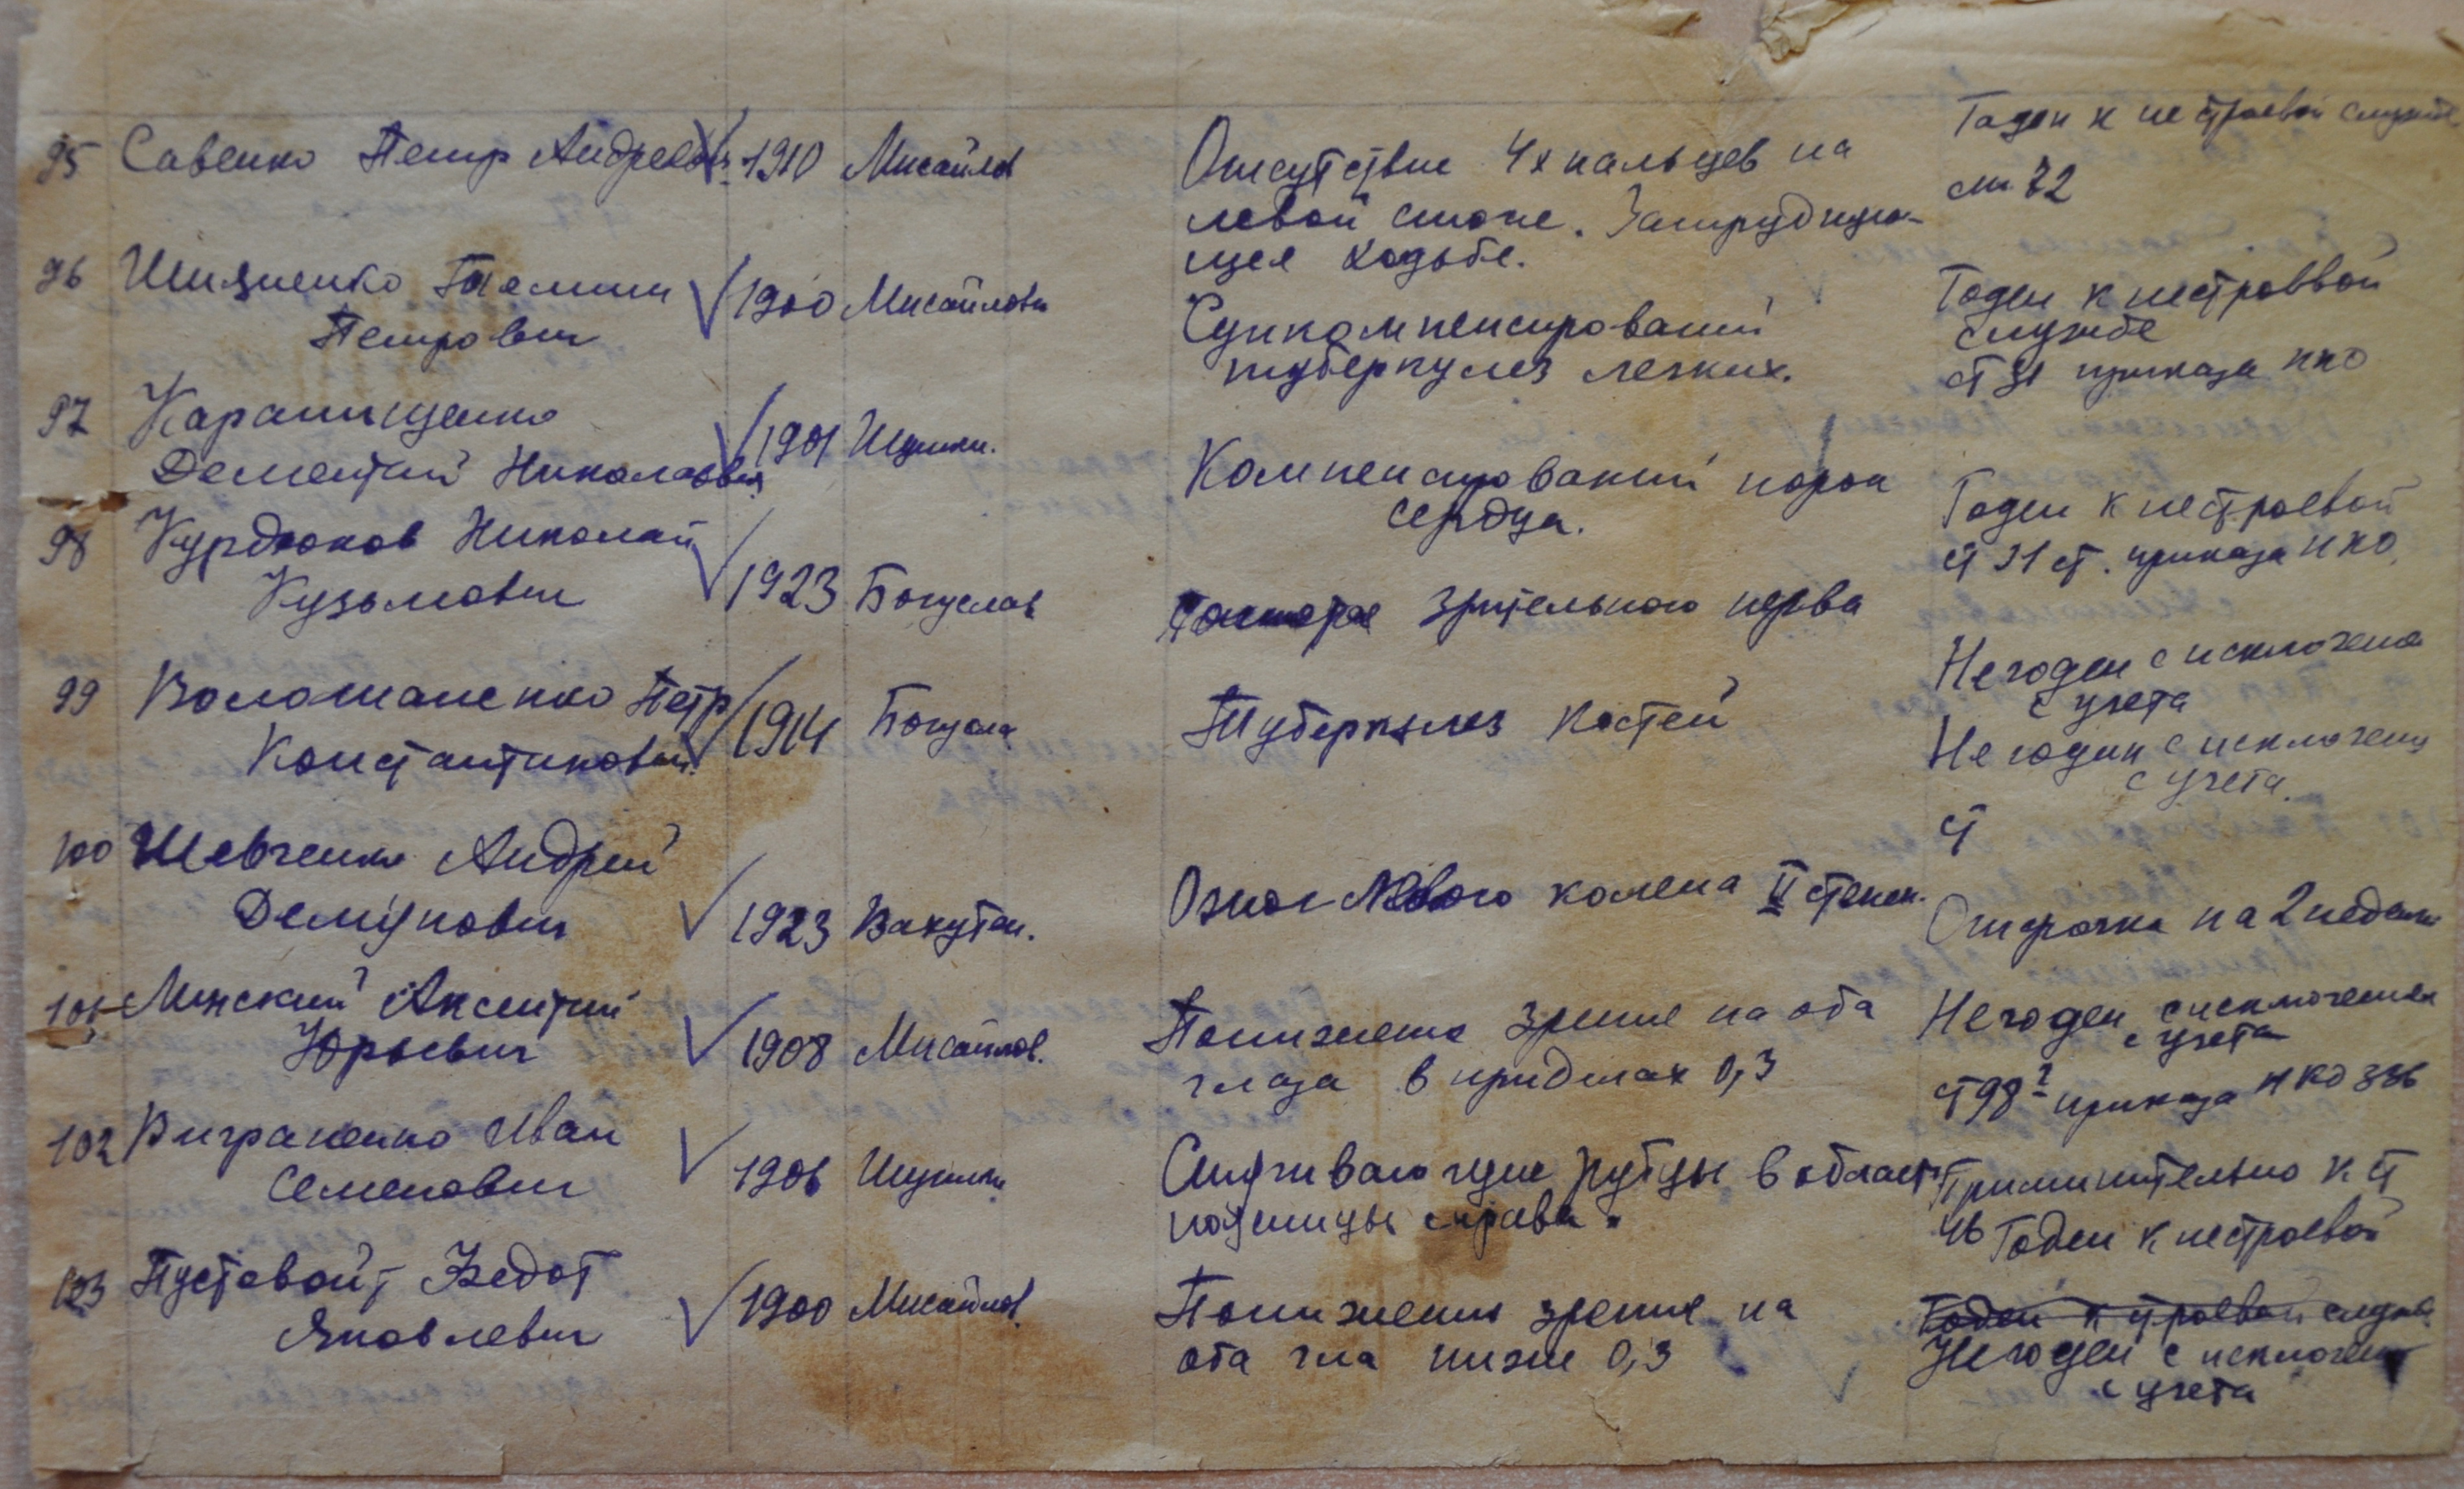 95 Савенко Петр Андреевич 1910 Мисайлов
Отсутствие 4х пальцев на
левой стопе. Затрудняю-
щея ходьбе.
Годен к не строевой службе
ст. 72
96 Петрович 1900 Мисайловки
Супкомпенсирований
туберкулез легких.
Годен к нестроевой
службе
ст 31 приказа НКО
97
Дементий Николаевич 1901 Щучки.
Компенсирований порок
сердца.
Годен к нестроевой
ст 31 ст. приказа НКО
98 Курдюков Николай
Кузьмович 1923 Богуслав
зрительного нерва
Не годен с исключение
с учета
99 Волошаненко Петр
Константинович 1914 Богусла
Туберкулез костей
Не годин с исключени
с учета.
ст
100 Шевченко Андрей
Демянович 1923 Вахутен.
Ожог левого колена II степен.
Отсрочка на 2 недели
101 Минский Аксентий
Юрьевич 1908 Мисайлов.
Понижение зрение на оба
глаза в приделах 0,3
Не годен с исключением
с учета
ст 98 приказа НКО 336
102 Виграненко Иван
Семенович 1906
Стягивающие рубцы в област
поясницы справа.
Приминительно к ст
46 Годен к нестроевой
103 Пустовойт Федот
Яковлевич 1900 Мисайлов.
Понижении зрение на
оба гла ниже 0,3
Годен к строевой служб
Не годен с исключени
с учета